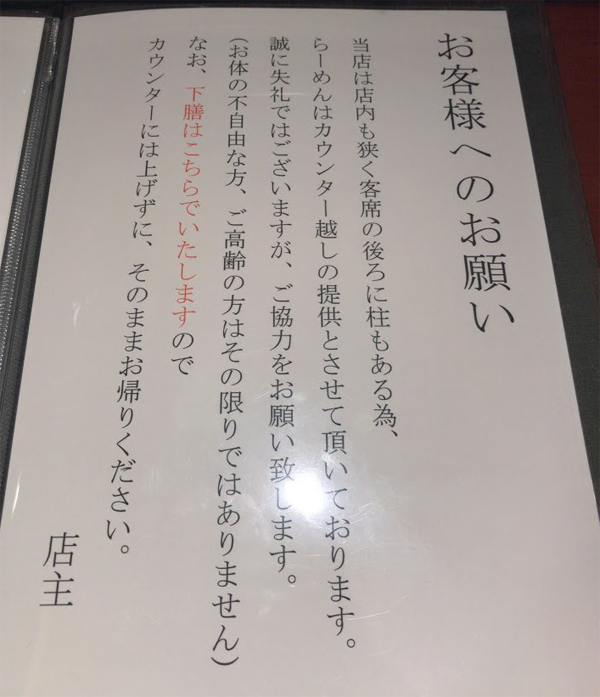 お客様へのお願い
当店は店内も狭く客席の後ろに柱もある為、
らーめんはカウンター越しの提供とさせて頂いております。
誠に失礼ではございますが、ご協力をお願い致します。
(お体の不自由な方、ご高齢の方はその限りではありません)
なお、下膳はこちらでいたしますので
カウンターには上げずに、そのままお帰りください。
店主